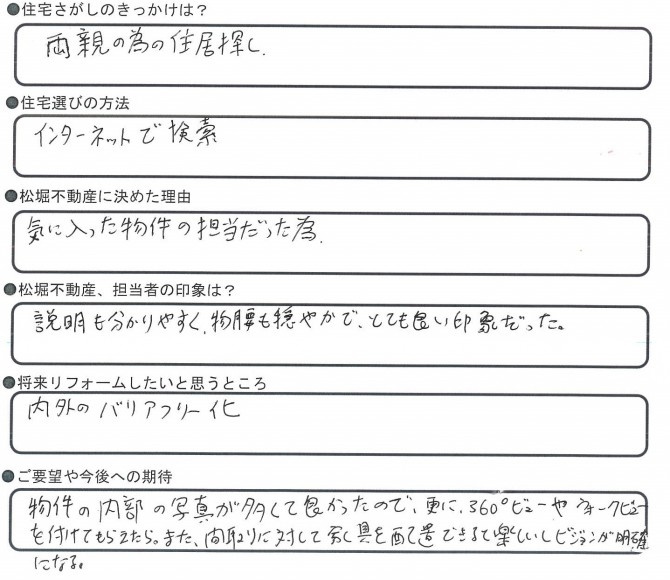 ●住宅さがしのきっかけは？
両親の為の住居探し.
●住宅選びの方法
インターネットで検索
●松堀不動産に決めた理由
気に入った物件の担当だった為.
●松堀不動産、担当者の印象は？
説明も分かりやすく、物腰も穏やかで、とても良い印象だった。
●将来リフォームしたいと思うところ
内外のバリアフリー化
●ご要望や今後への期待
物件の内部の写真が多くて良かったので、更に、360°ビューやウォークビュー
を付けてもらえたら。また、間取りに対して家具を配置できると楽しいしビジョンが明確
になる。